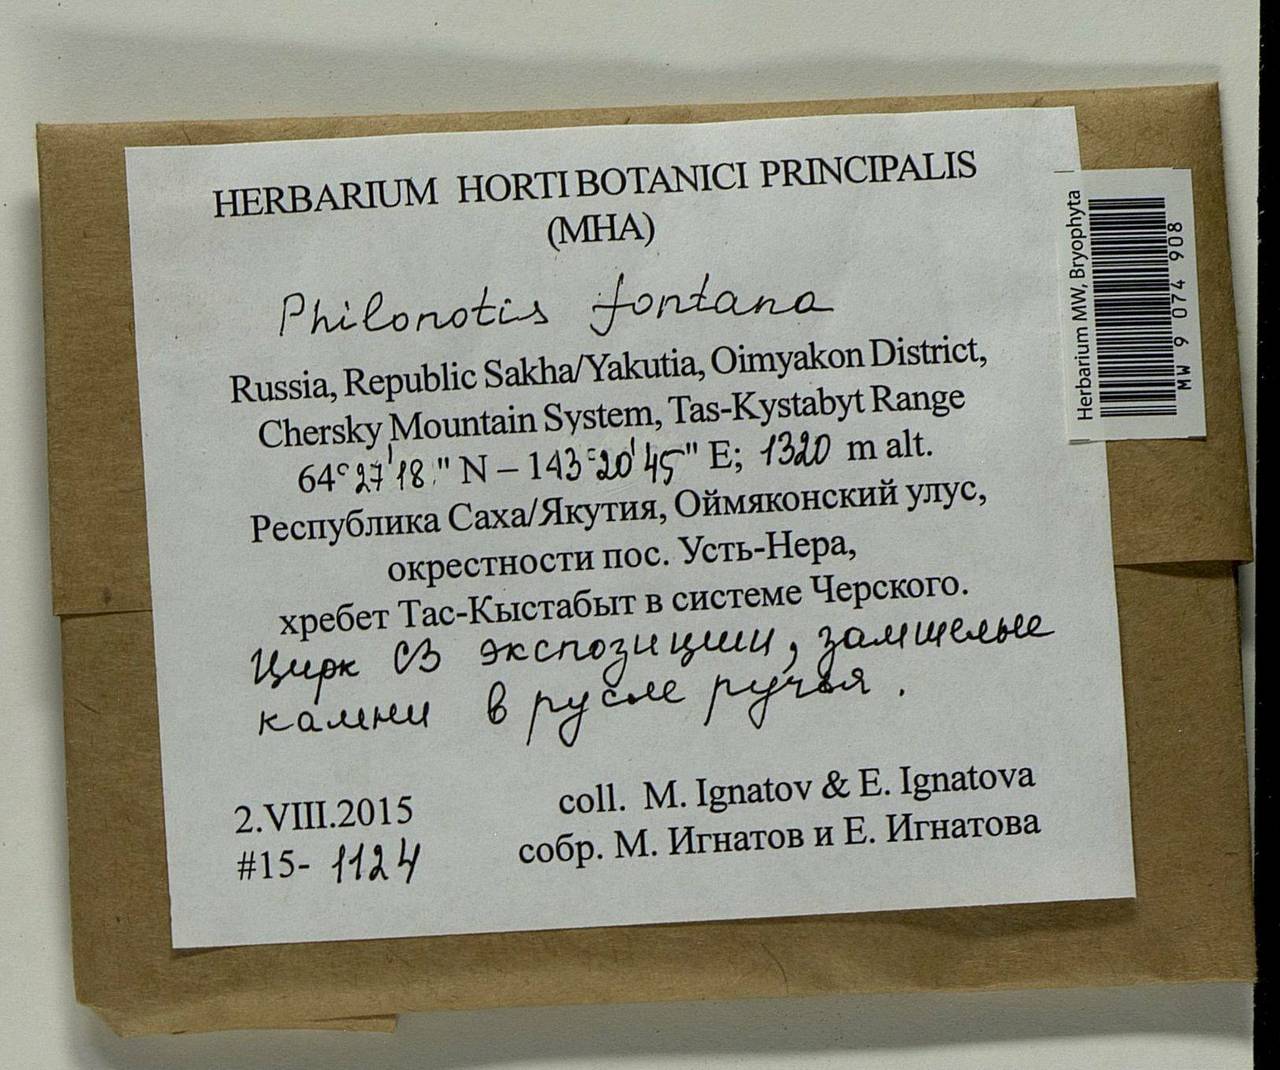 HERBARIUM HORTI BOTANICI PRINCIPALIS
(MHA)
Philonotis fontana
Russia, Republic Sakha/Yakutia, Oimyakon District,
Chersky Mountain System, Tas-Kystabyt Range
64°27'18" N – 143°20'45" E; 1320 m alt.
Республика Саха/Якутия, Оймяконский улус,
окрестности пос. Усть-Нера,
хребет Тас-Кыстабыт в системе Черского.
Цирк СЗ экспозиции, замшелые
камни в русле ручья.
2.VIII.2015
#15- 1124
coll. M. Ignatov & E. Ignatova
собр. М. Игнатов и Е. Игнатова
Herbarium MW, Bryophyta
MW 9 074 908